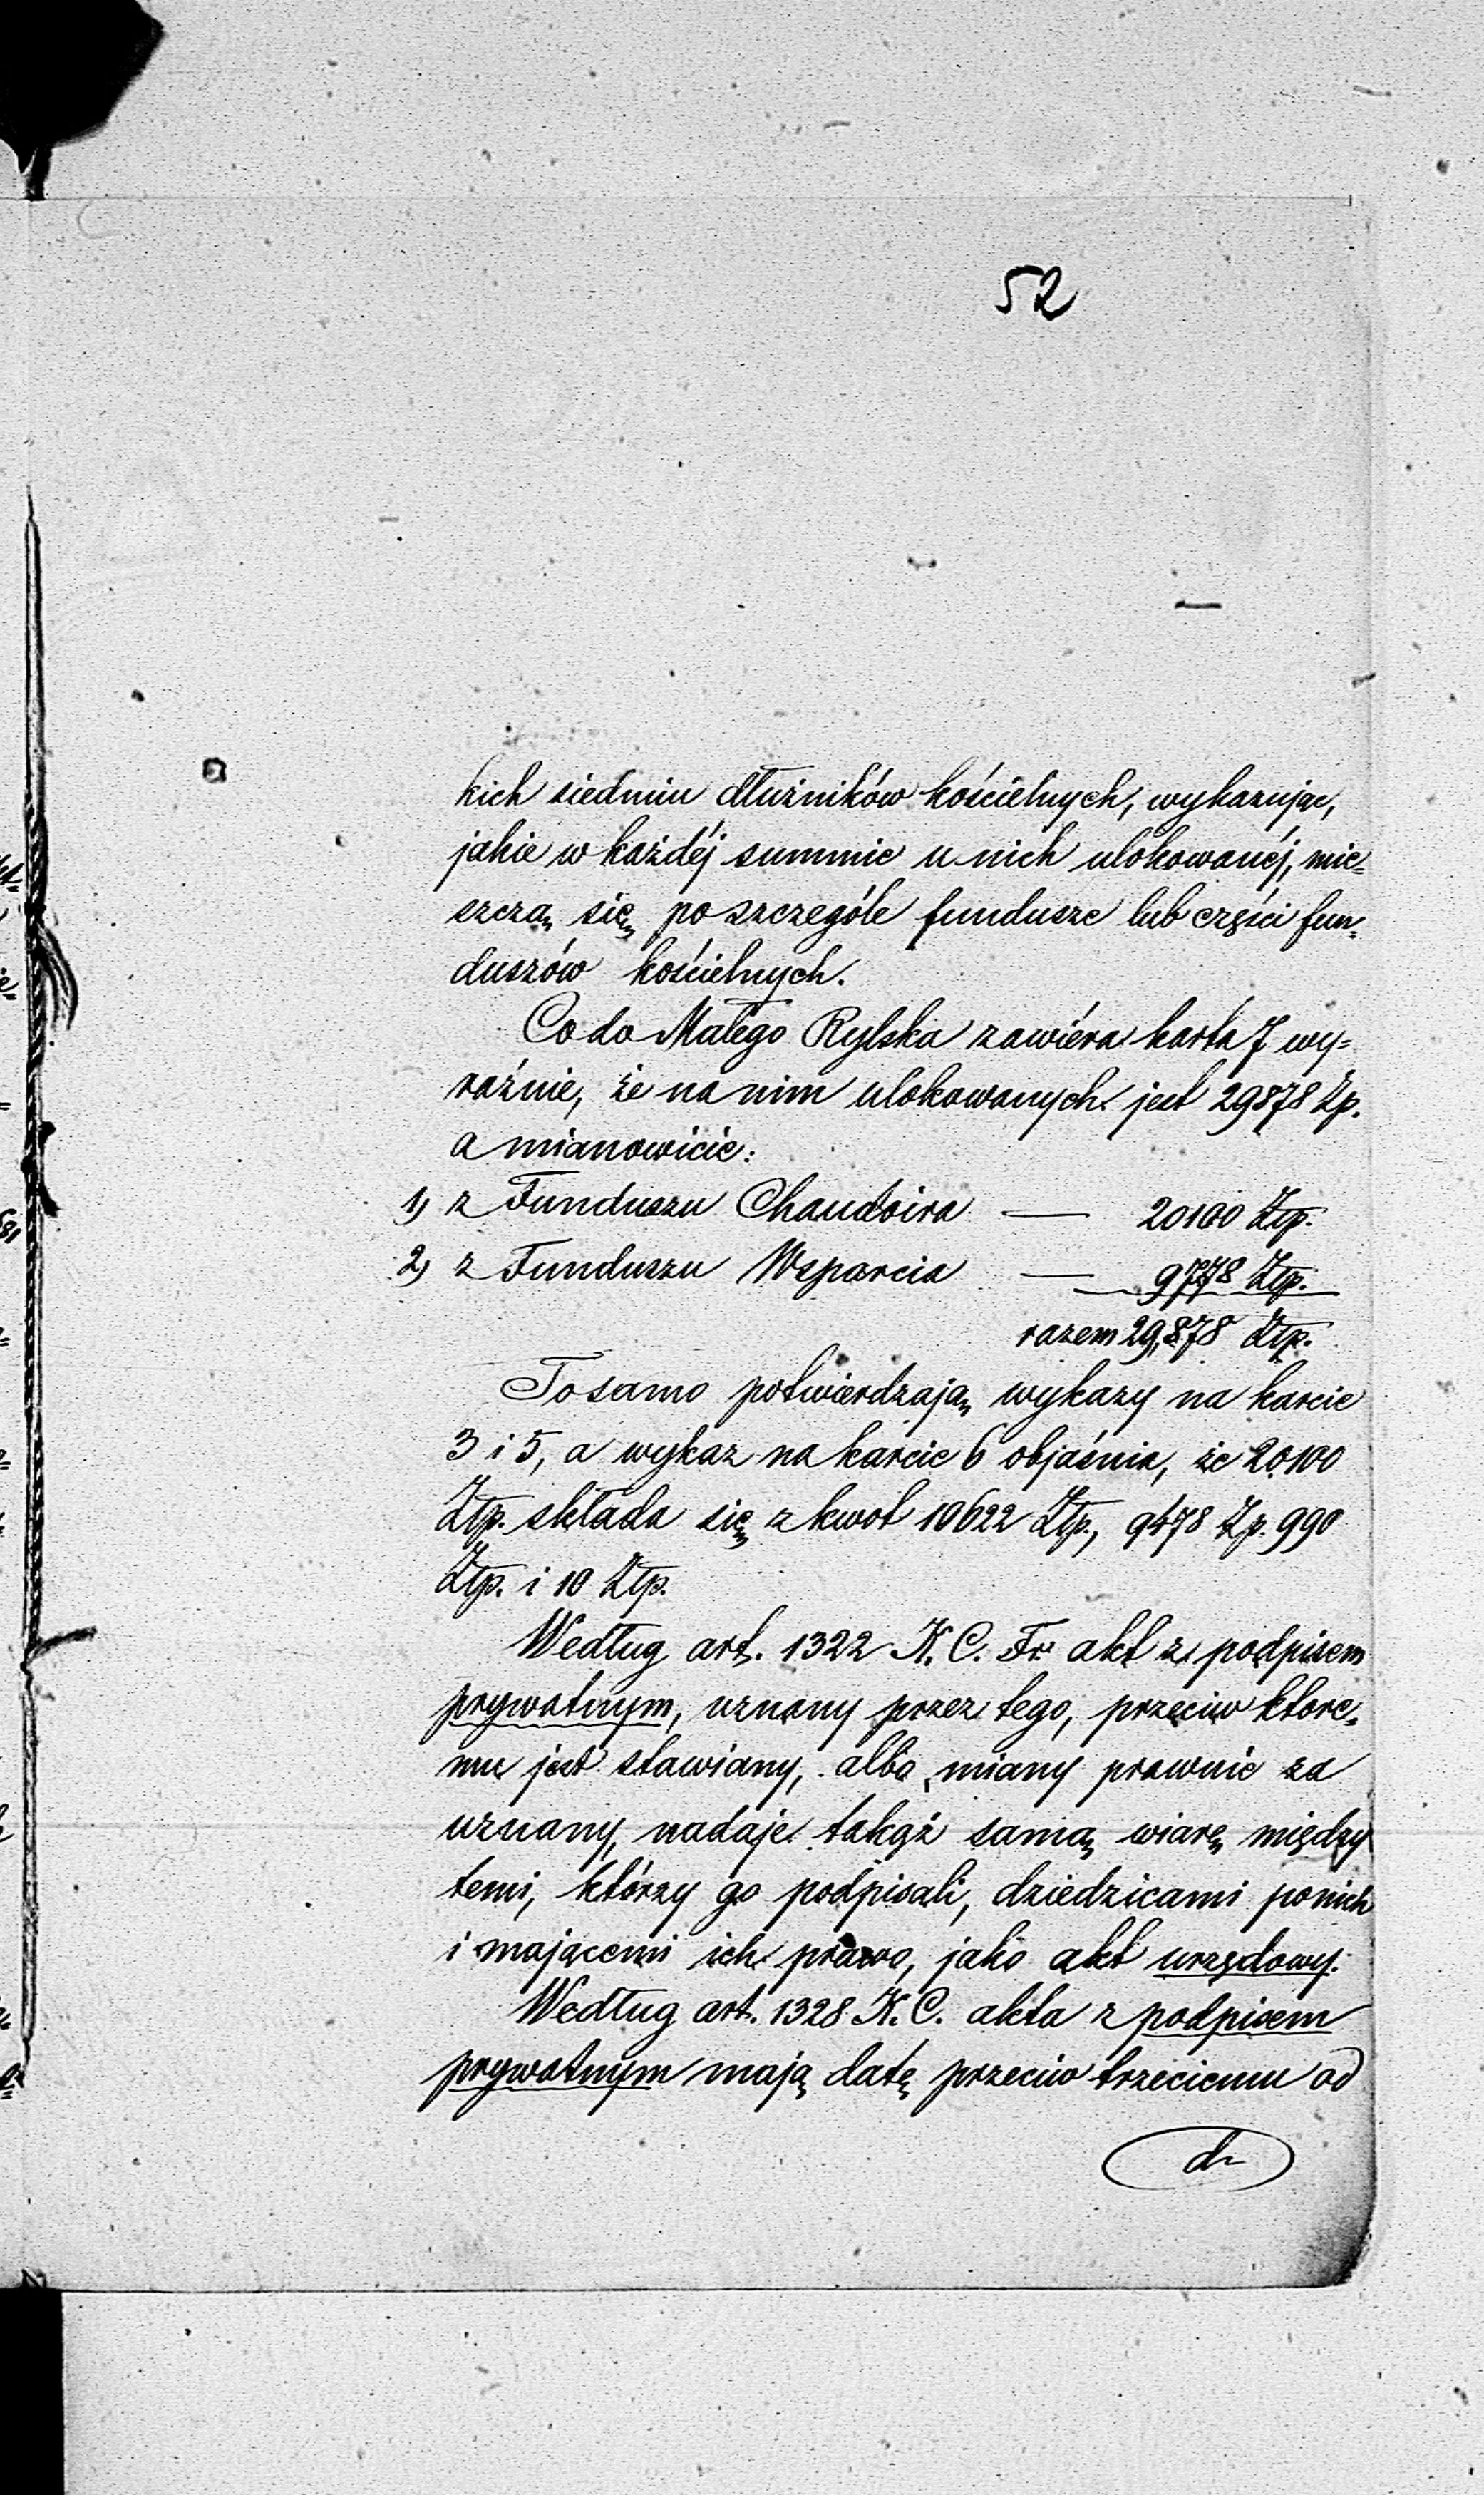 52
kich siedmiu dłużników kościelnych, wykazując,
jakie w każdéj summie u nich ulokowanéj, mie=
szczą się poszczególe fundusze lub części fun=
duszów kościelnych.
Co do Małego Rylska zawiéra karta 7 wy=
raźnie, że na nim ulokowanych jest 29878 Zp.
a mianowicie:
1) z Funduszu Chaudoira — 20100 Ztp.
2) z Funduszu Wsparcia — 9778 Ztp.
razem 29,878 Ztp.
To samo potwierdzają wykazy na karcie
3 i 5, a wykaz na karcie 6 objaśnia, że 20100
Ztp. składa się z kwot 10622 Ztp., 9478 Zp. 990
Ztp. i 10 Ztp.
Według art. 1322 K. C. Fr. akt z podpisem
prywatnym, uznany przez tego, przeciw które=
mu jest stawiany, albo miany prawnie za
uznany, nadaje takąż samą wiarę między
temi, którzy go podpisali, dziedzicami po nich
i mającemi ich prawo, jako akt urzędowy.
Według art. 1328 K. C. akta z podpisem
prywatnym mają datę przeciw trzeciemu od